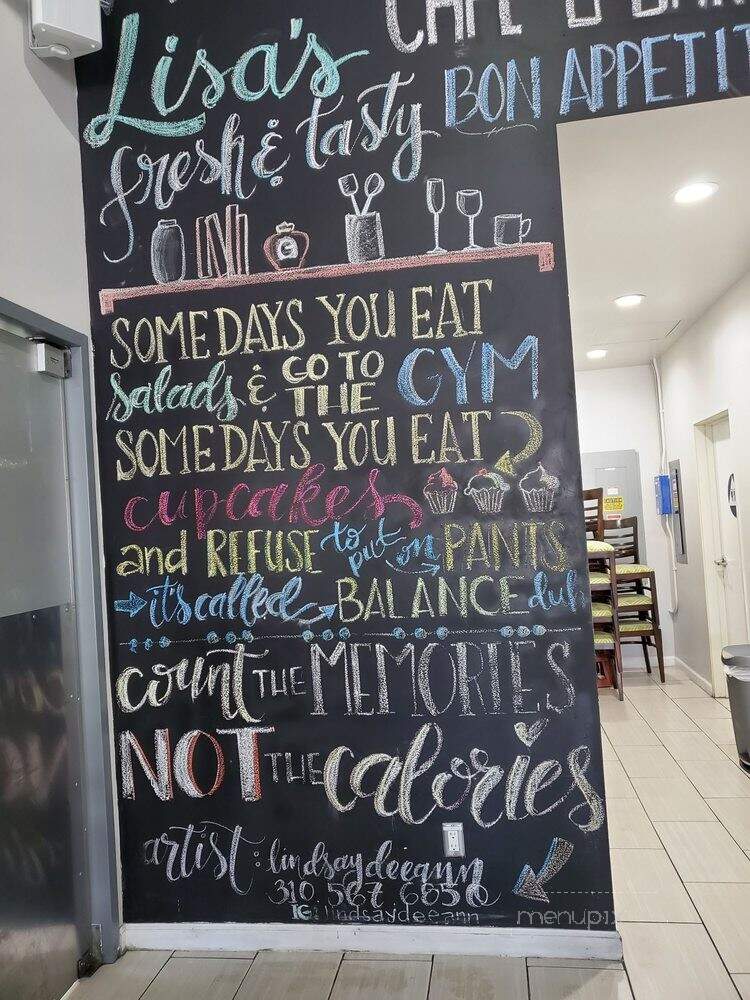 Lisa's CAFE &
fresh & tasty BON APPETIT
G
SOME DAYS YOU EAT
salads & GO TO THE GYM
SOME DAYS YOU EAT
cupcakes
and REFUSE to put on PANTS
it's called BALANCE duh
count THE MEMORIES
NOT THE calories
artist: lindsaydeeann
310 567 6650
IG: lindsaydeeann
menupix